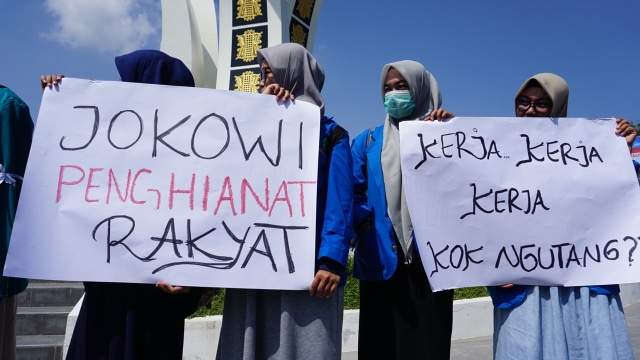 JOKOWI
PENGHIANAT
RAKYAT
KERJA... KERJA
KERJA
KOK NGUTANG??